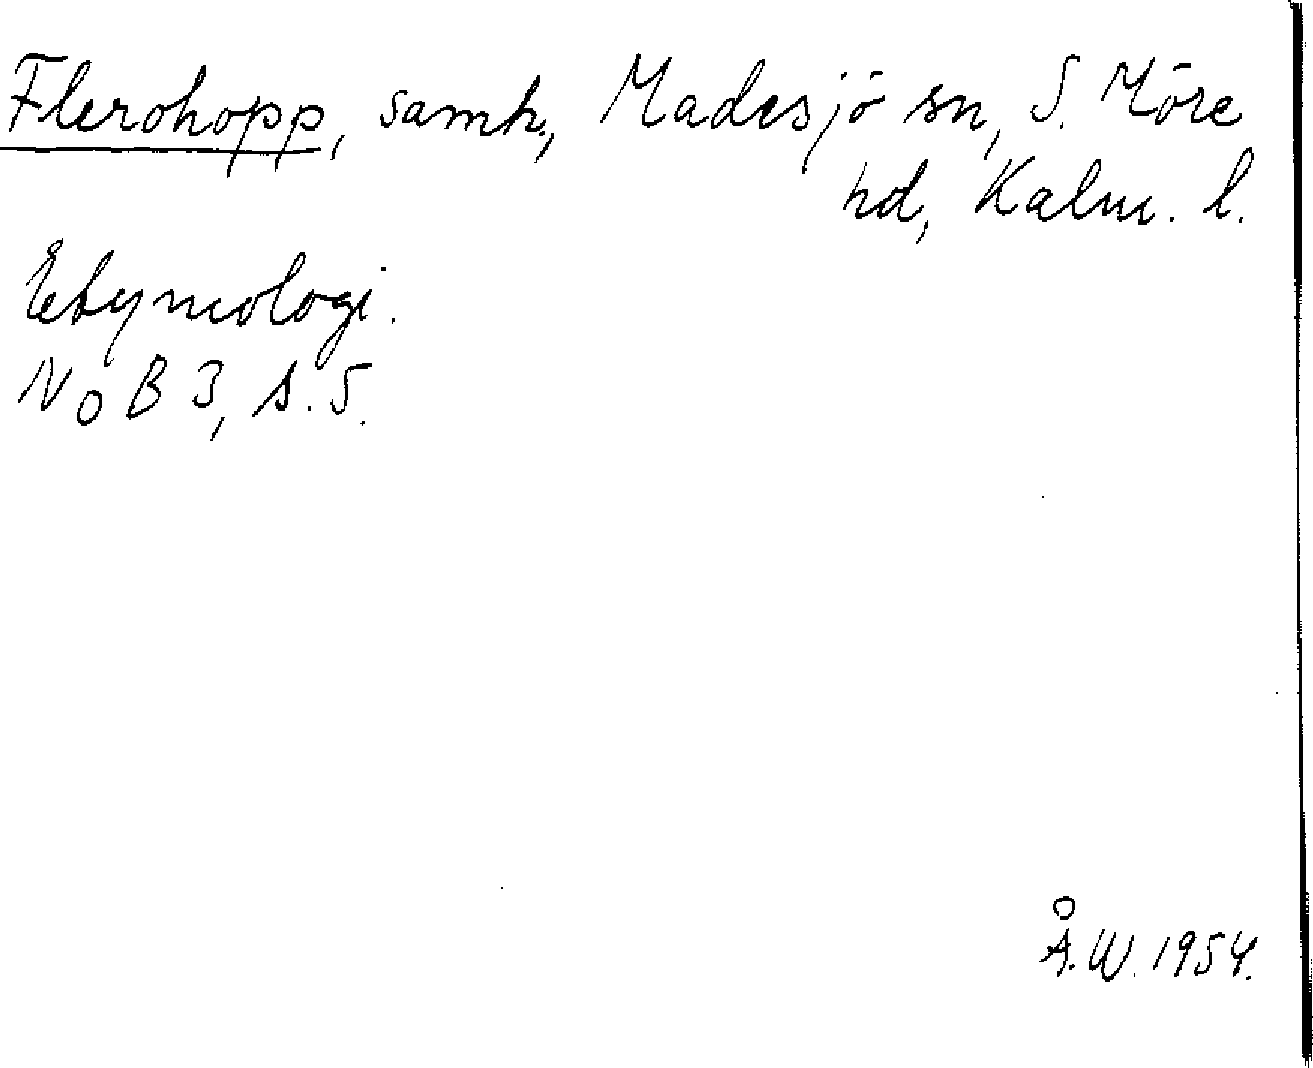 Flerohopp, samh, Madesjö sn, S. Möre
hd, Kalm. l.
Etymologi.
NoB 3, s. 5.
Å.W. 1954.